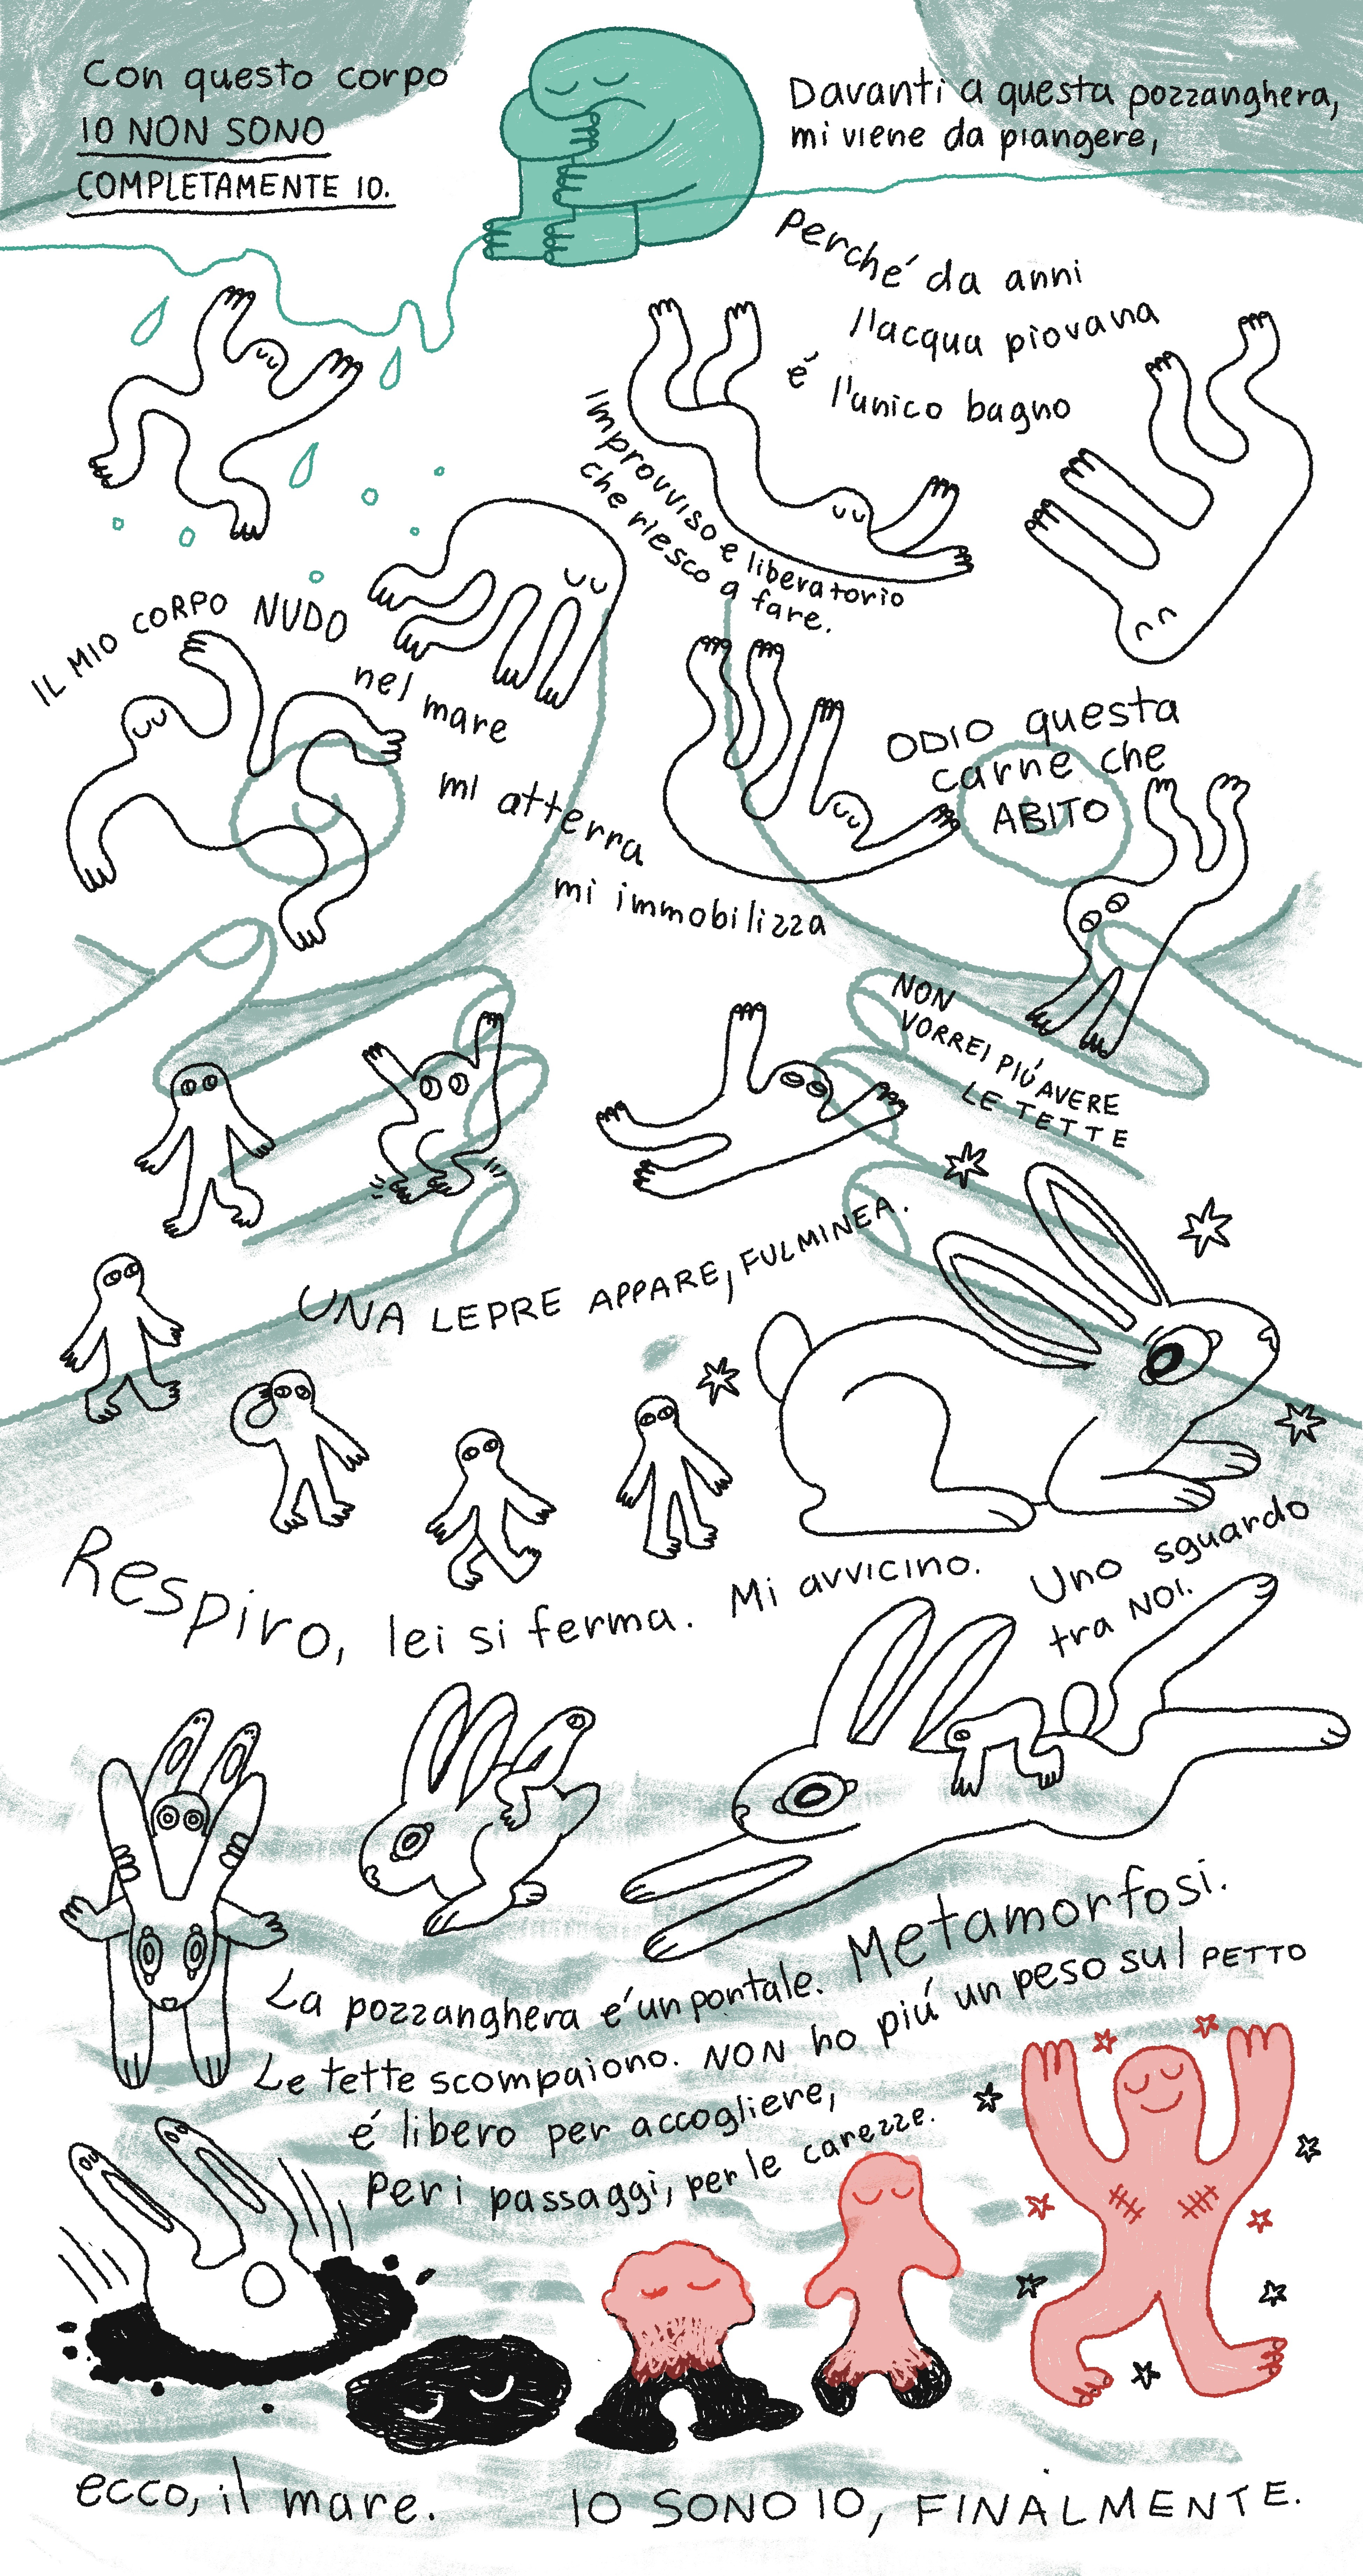 Con questo corpo
IO NON SONO
COMPLETAMENTE IO.
Davanti a questa pozzanghera,
mi viene da piangere,
perché da anni
l'acqua piovana
é l'unico bagno
improvviso e liberatorio
che riesco a fare.
IL MIO CORPO NUDO
nel mare
mi atterra
mi immobilizza
ODIO questa
carne che
ABITO
NON
VORREI PIÚ AVERE
LE TETTE
UNA LEPRE APPARE, FULMINEA.
Respiro, lei si ferma. Mi avvicino.
Uno sguardo
tra NOI.
La pozzanghera é un portale. Metamorfosi.
Le tette scompaiono. NON ho piú un peso sul PETTO
é libero per accogliere,
per i passaggi, per le carezze.
ecco, il mare.
IO SONO IO, FINALMENTE.